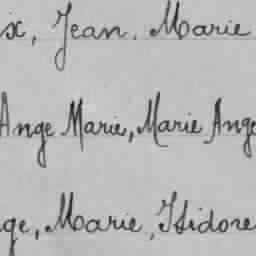 ix, Jean, Marie
Ange Marie, Marie Ange
ge, Marie, Isidore